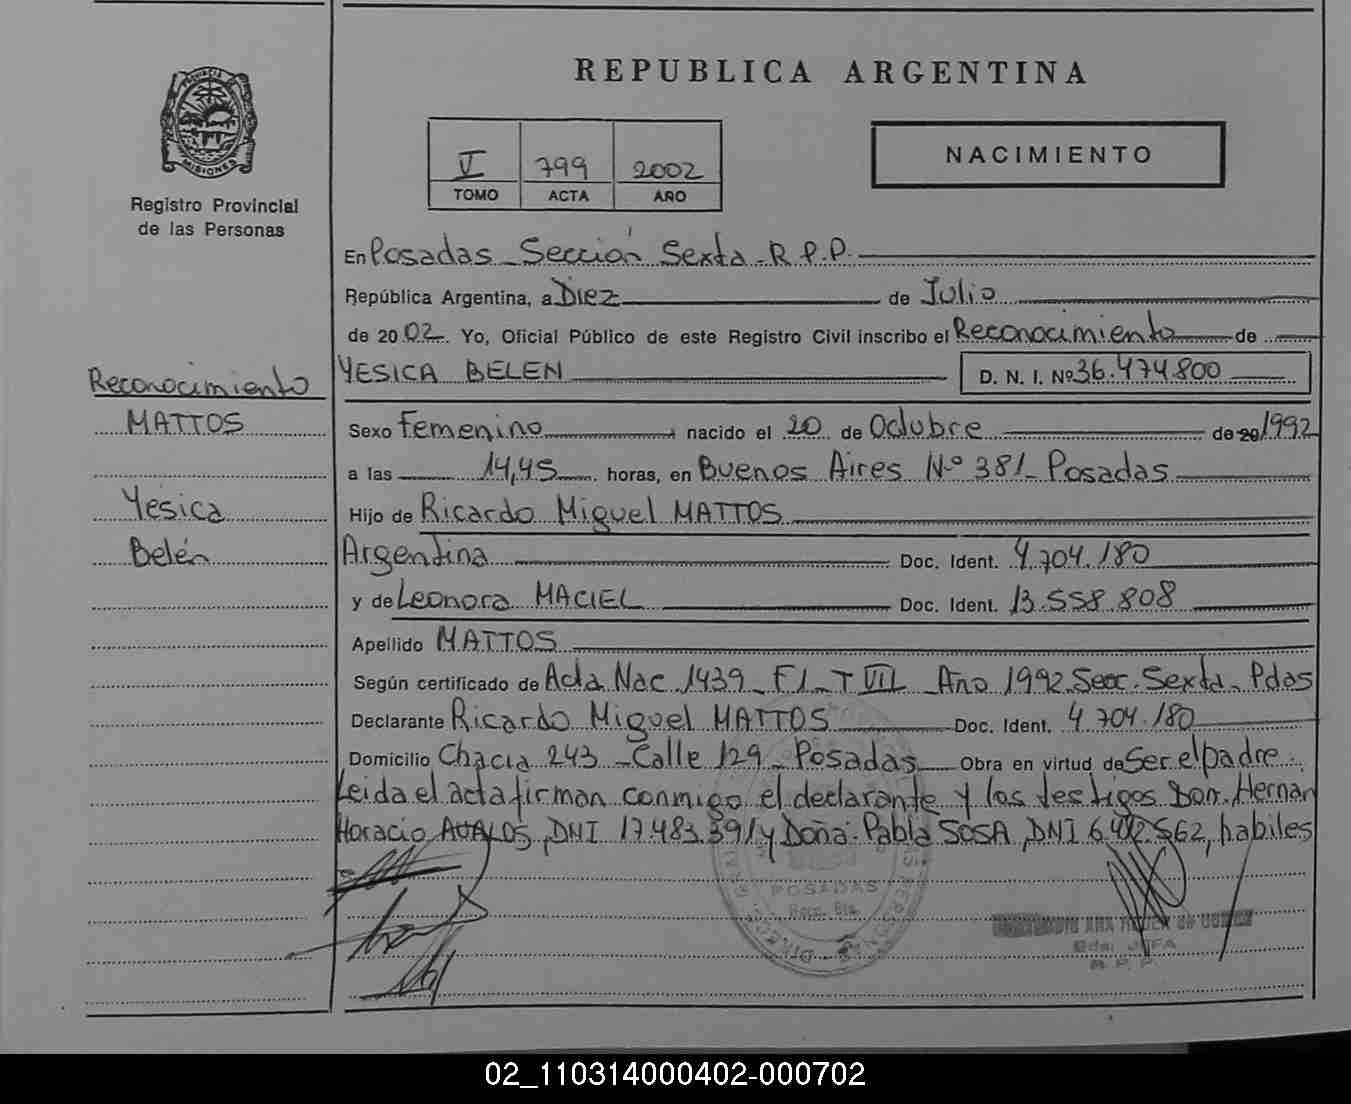 REPUBLICA ARGENTINA
PROVINCIA DE
MISIONES
Registro Provincial
de las Personas
V 799 2002
TOMO ACTA AÑO
NACIMIENTO
En Posadas - Sección Sexta - R.P.P.
República Argentina, a Diez de Julio
de 2002. Yo, Oficial Público de este Registro Civil inscribo el Reconocimiento de
YESICA BELEN D. N. I. Nº 36.474.800
Reconocimiento
MATTOS
Yesica
Belén
Sexo Femenino nacido el 20 de Octubre de 20 1992
a las 14,45 horas, en Buenos Aires Nº 381 - Posadas
Hijo de Ricardo Miguel MATTOS
Argentina Doc. Ident. 4.704.180
y de Leonora MACIEL Doc. Ident. 13.558.808
Apellido MATTOS
Según certificado de Acta Nac 1439 - F1 - T VII - Año 1992. Secc. Sexta - Pdas
Declarante Ricardo Miguel MATTOS Doc. Ident. 4.704.180
Domicilio Chacra 243 - Calle 129 - Posadas Obra en virtud de Ser el padre.
Leida el acta firman conmigo el declarante y los testigos Don: Hernan
Horacio AVALOS, DNI 17.483.391 y Doña: Pabla SOSA, DNI 6.412.562, habiles
POSADAS
JEFA
R. P. P.
02_110314000402-000702